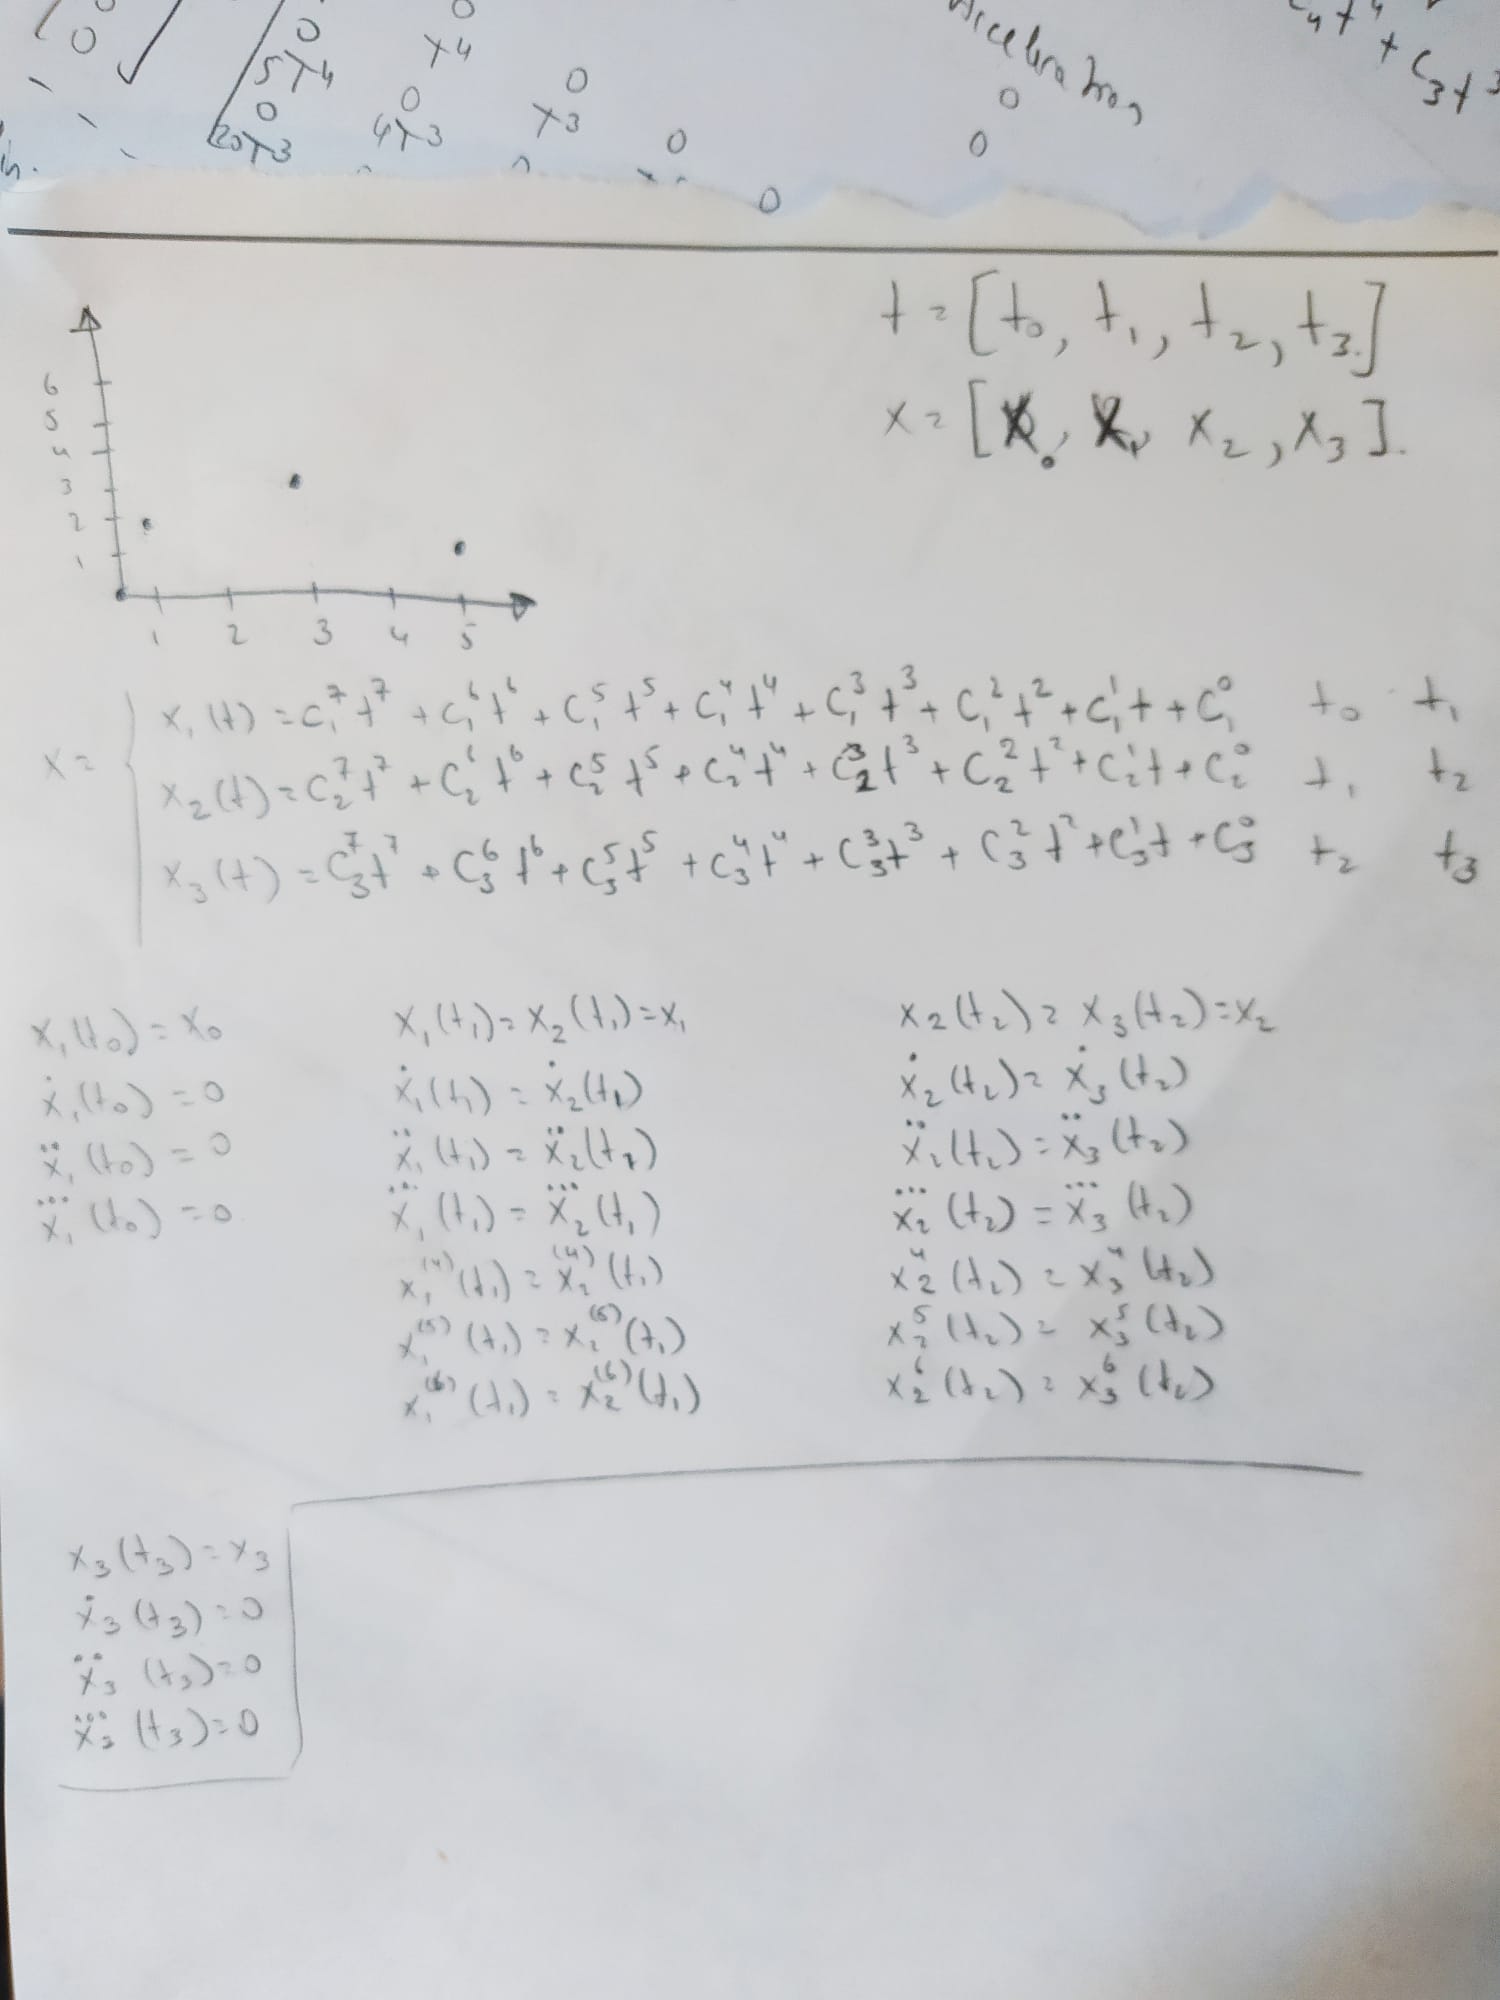 0
0 0
5T4 T4 0
0 0 T3
20T3 4T3 0
0
Acceleration
0
0
+ C3t3
t = [t0, t1, t2, t3.]
x = [x0, x1, x2, x3].
6
5
4
3
2
1
1 2 3 4 5
x1(t) = C1^7 t^7 + C1^6 t^6 + C1^5 t^5 + C1^4 t^4 + C1^3 t^3 + C1^2 t^2 + C1^1 t + C1^0 t0 t1
x = { x2(t) = C2^7 t^7 + C2^6 t^6 + C2^5 t^5 + C2^4 t^4 + C2^3 t^3 + C2^2 t^2 + C2^1 t + C2^0 t1 t2
x3(t) = C3^7 t^7 + C3^6 t^6 + C3^5 t^5 + C3^4 t^4 + C3^3 t^3 + C3^2 t^2 + C3^1 t + C3^0 t2 t3
x1(t0) = x0
ẋ1(t0) = 0
ẍ1(t0) = 0
x⃛1(t0) = 0
x1(t1) = x2(t1) = x1
ẋ1(t1) = ẋ2(t1)
ẍ1(t1) = ẍ2(t1)
x⃛1(t1) = x⃛2(t1)
x1^(4)(t1) = x2^(4)(t1)
x1^(5)(t1) = x2^(5)(t1)
x1^(6)(t1) = x2^(6)(t1)
x2(t2) = x3(t2) = x2
ẋ2(t2) = ẋ3(t2)
ẍ2(t2) = ẍ3(t2)
x⃛2(t2) = x⃛3(t2)
x2^4(t2) = x3^4(t2)
x2^5(t2) = x3^5(t2)
x2^6(t2) = x3^6(t2)
x3(t3) = x3
ẋ3(t3) = 0
ẍ3(t3) = 0
x⃛3(t3) = 0